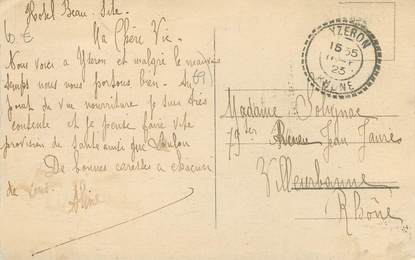 Hotel Beau-Site
Ma Chère Vic
Nous voici à Yzeron et malgré le mauvais
temps nous nous portons bien. Au
point de vue nourriture je suis très
contente et je pense faire vite
provision de Santé ainsi que Loulou
De bonnes caresses à chacun
de vous. Aline
YZERON
15 35
23
RHÔNE
Madame Solignac
79 ter Avenue Jean Jaurès
Villeurbanne
Rhône